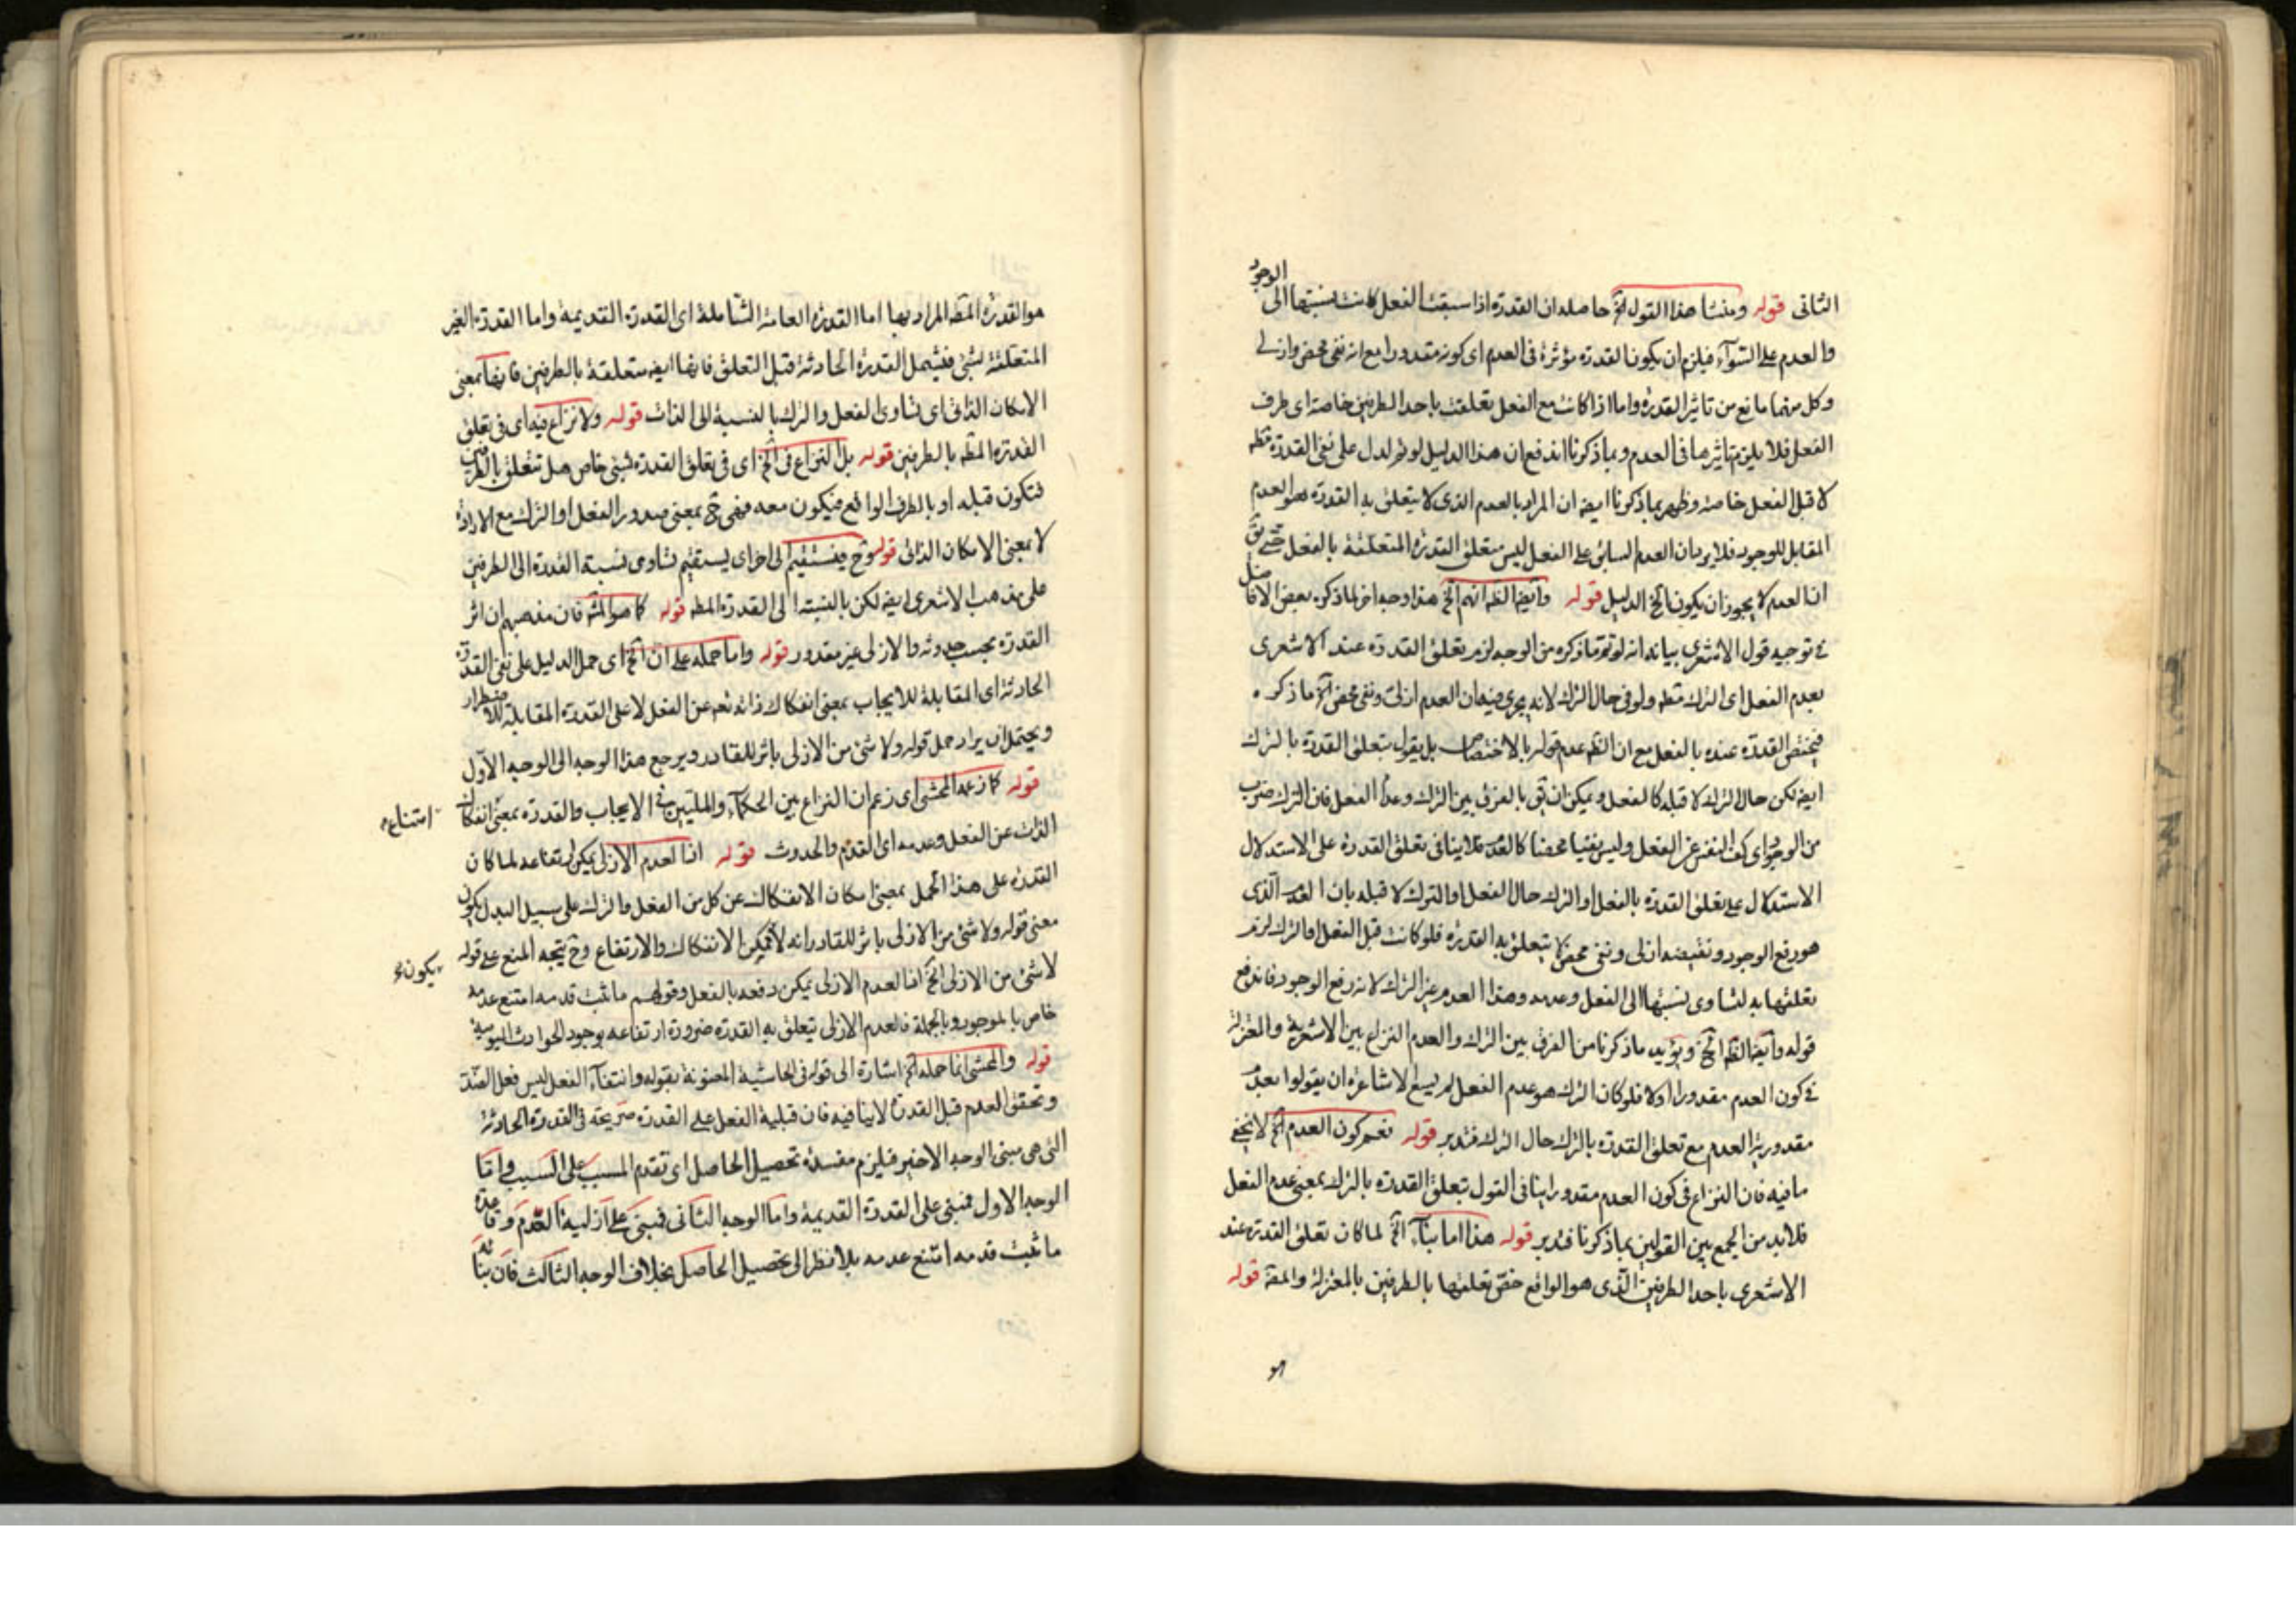 الثانى قوله ومنشا هذا القول الخ حاصله ان القدرة اذا سبقت الفعل كانت نسبتها الى الوجود
والعدم على السوآء فيلزم ان يكون القدرة مؤثرة فى العدم اى كونه مقدورا مع انه نفى محض وازلى
وكل منهما مانع من تاثير القدرة واما اذا كانت مع الفعل تعلقت باحد الطرفين خاصة اى طرف
الفعل فلا يلزم تاثيرها فى العدم وبما ذكرنا اندفع ان هذا الدليل لو تم لدل على نفى القدرة مطه
لا قبل الفعل خاصة وظهر بما ذكرنا ايضه ان المراد بالعدم الذى لا يتعلق به القدرة هو العدم
المقابل للوجود فلا يرد بان العدم السابق على الفعل ليس متعلق القدرة المتعلقة بالفعل حتى يق
ان العدم لا يجوز ان يكون الخ الدليل قوله وايضا الظه انهم الخ هذا وجه اخر لما ذكره بعض الافاضل
فى توجيه قول الاشعرى بيانه انه لو تم ما ذكره من الوجه لزم تعلق القدرة عند الاشعرى
بعدم الفعل اى الترك مطه ولو فى حال الترك لانه يجرى فيه ان العدم ازلى ونفى محض الخ ما ذكره
فيختص القدرة عنده بالفعل مع ان الظه عدم قوله بالاختصاص بل يقول بتعلق القدرة بالترك
ايضه لكن حال الترك لا قبله كالفعل ويمكن ان يق بالفرق بين الترك وعدم الفعل فان الترك ضرب
من الوجود اى كف النفس عن الفعل وليس نفيا محضا كالعدم فلا ينافى تعلق القدرة على الاستدلال
الاستدلال على تعلق القدرة بالفعل او الترك حال الفعل او الترك لا قبله بان العدم الذى
هو رفع الوجود ونقيضه ازلى ونفى محض لا يتعلق به القدرة فلو كانت قبل الفعل او الترك لزم
تعلقها به لتساوى نسبتها الى الفعل وعدمه وهذا العدم غير الترك لانه رفع الوجود فاندفع
قوله وايضا الظه الخ ويؤيد ما ذكرنا من الفرق بين الترك والعدم النزاع بين الاشعرية والمعتزلة
فى كون العدم مقدورا اولا فلو كان الترك هو عدم الفعل لم يسع لاشاعرة ان يقولوا بعدم
مقدورية العدم مع تعلق القدرة بالترك حال الترك فتدبر قوله نعم كون العدم الخ لا يخفى
ما فيه فان النزاع فى كون العدم مقدورا ينافى القول بتعلق القدرة بالترك بمعنى عدم الفعل
فلابد من الجمع بين القولين بما ذكرنا فتدبر قوله هذا اما بنآء الخ لما كان تعلق القدرة عند
الاشعرى باحد الطرفين الذى هو الواقع خص تعلقها بالطرفين بالمعتزلة والمقه قوله
هو
هو القدرة المطه المراد بها اما القدرة العامة الشاملة اى القدرة القديمة واما القدرة الغير
المتعلقة بشئ فيشمل القدرة الحادثة قبل التعلق فانها ايضه متعلقة بالطرفين فانها بمعنى
الامكان الذاتى اى تساوى الفعل والترك بالنسبة الى الذات قوله ولا نزاع فيه اى فى تعلق
القدرة المطه بالطرفين قوله بل النزاع فى الخ اى فى تعلق القدرة بشئ خاص هل تتعلق بالطرفين
فتكون قبله او بالطرف الواقع فيكون معه فهى ح بمعنى صدور الفعل او الترك مع الارادة
لا بمعنى الامكان الذاتى قوله وح يستقيم الى اخر اى يستقيم تساوى نسبة القدرة الى الطرفين
على مذهب الاشعرى ايضه لكن بالنسبة الى القدرة المطه قوله كما هو المشه فان مذهبهم ان اثر
القدرة يجب حدوثه والازلى غير مقدور قوله واما حمله على ان الخ اى حمل الدليل على نفى القدرة
الحادثة اى المقابلة للايجاب بمعنى انفكاك ذاته تعه عن الفعل لا على القدرة المقابلة للاضطرار
ويحتمل ان يراد حمل قوله ولا شئ من الازلى باثر للقادر ويرجع هذا الوجه الى الوجه الاول
قوله كما زعمه المحشى اى زعم ان النزاع بين الحكمآء والمليين فى الايجاب والقدرة بمعنى انفكاك
امتناع
الذات عن الفعل وعدمه اى القدم والحدوث قوله ان العدم الازلى يمكن ارتفاعه لما كان
القدرة على هذا الحمل بمعنى امكان الانفكاك عن كل من الفعل والترك على سبيل البدل يكون
معنى قوله ولا شئ من الازلى باثر للقادر انه لا يمكن الانفكاك والارتفاع وح يتجه المنع على قوله
يكون
لا شئ من الازلى الخ ان العدم الازلى يمكن دفعه بالفعل وقولهم ما ثبت قدمه امتنع عدمه
خاص بالموجود وبالجملة فالعدم الازلى يتعلق به القدرة ضرورة ارتفاعه بوجود الحوادث اليومية
قوله والمحشى انما حمله الخ اشارة الى قوله فى الحاشية المعنونة بقوله وانتفآء الفعل ليس فعل الضد
وتحقق العدم قبل القدرة لا ينافيه فان قبلية الفعل على القدرة صريحة فى القدرة الحادثة
التى هى مبنى الوجه الاخير فيلزم مفسدة تحصيل الحاصل اى تقدم المسبب على السبب واما
الوجه الاول فمبنى على القدرة القديمة واما الوجه الثانى فمبنى على ازلية العدم وقاعدة
ما ثبت قدمه امتنع عدمه بلا نظر الى تحصيل الحاصل بخلاف الوجه الثالث فان بنائه